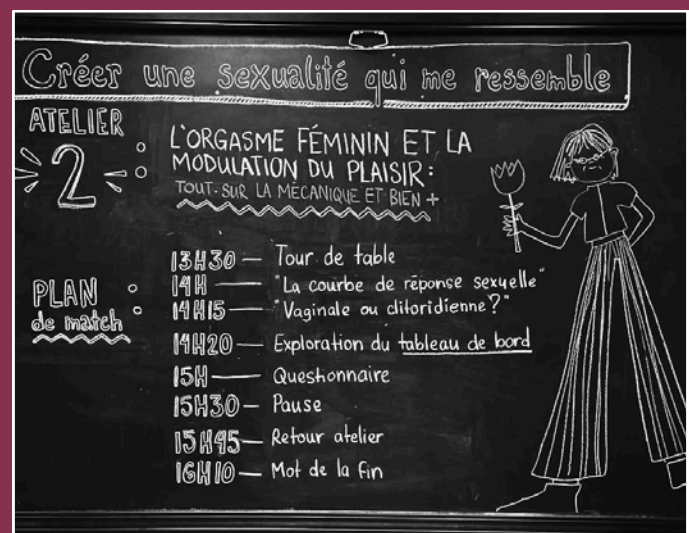 Créer une sexualité qui me ressemble
ATELIER
2 :
L'ORGASME FÉMININ ET LA
MODULATION DU PLAISIR :
TOUT SUR LA MÉCANIQUE ET BIEN +
PLAN
de match :
13H30 — Tour de table
14H — "La courbe de réponse sexuelle"
14H15 — "Vaginale ou clitoridienne?"
14H20 — Exploration du tableau de bord
15H — Questionnaire
15H30 — Pause
15H45 — Retour atelier
16H10 — Mot de la fin